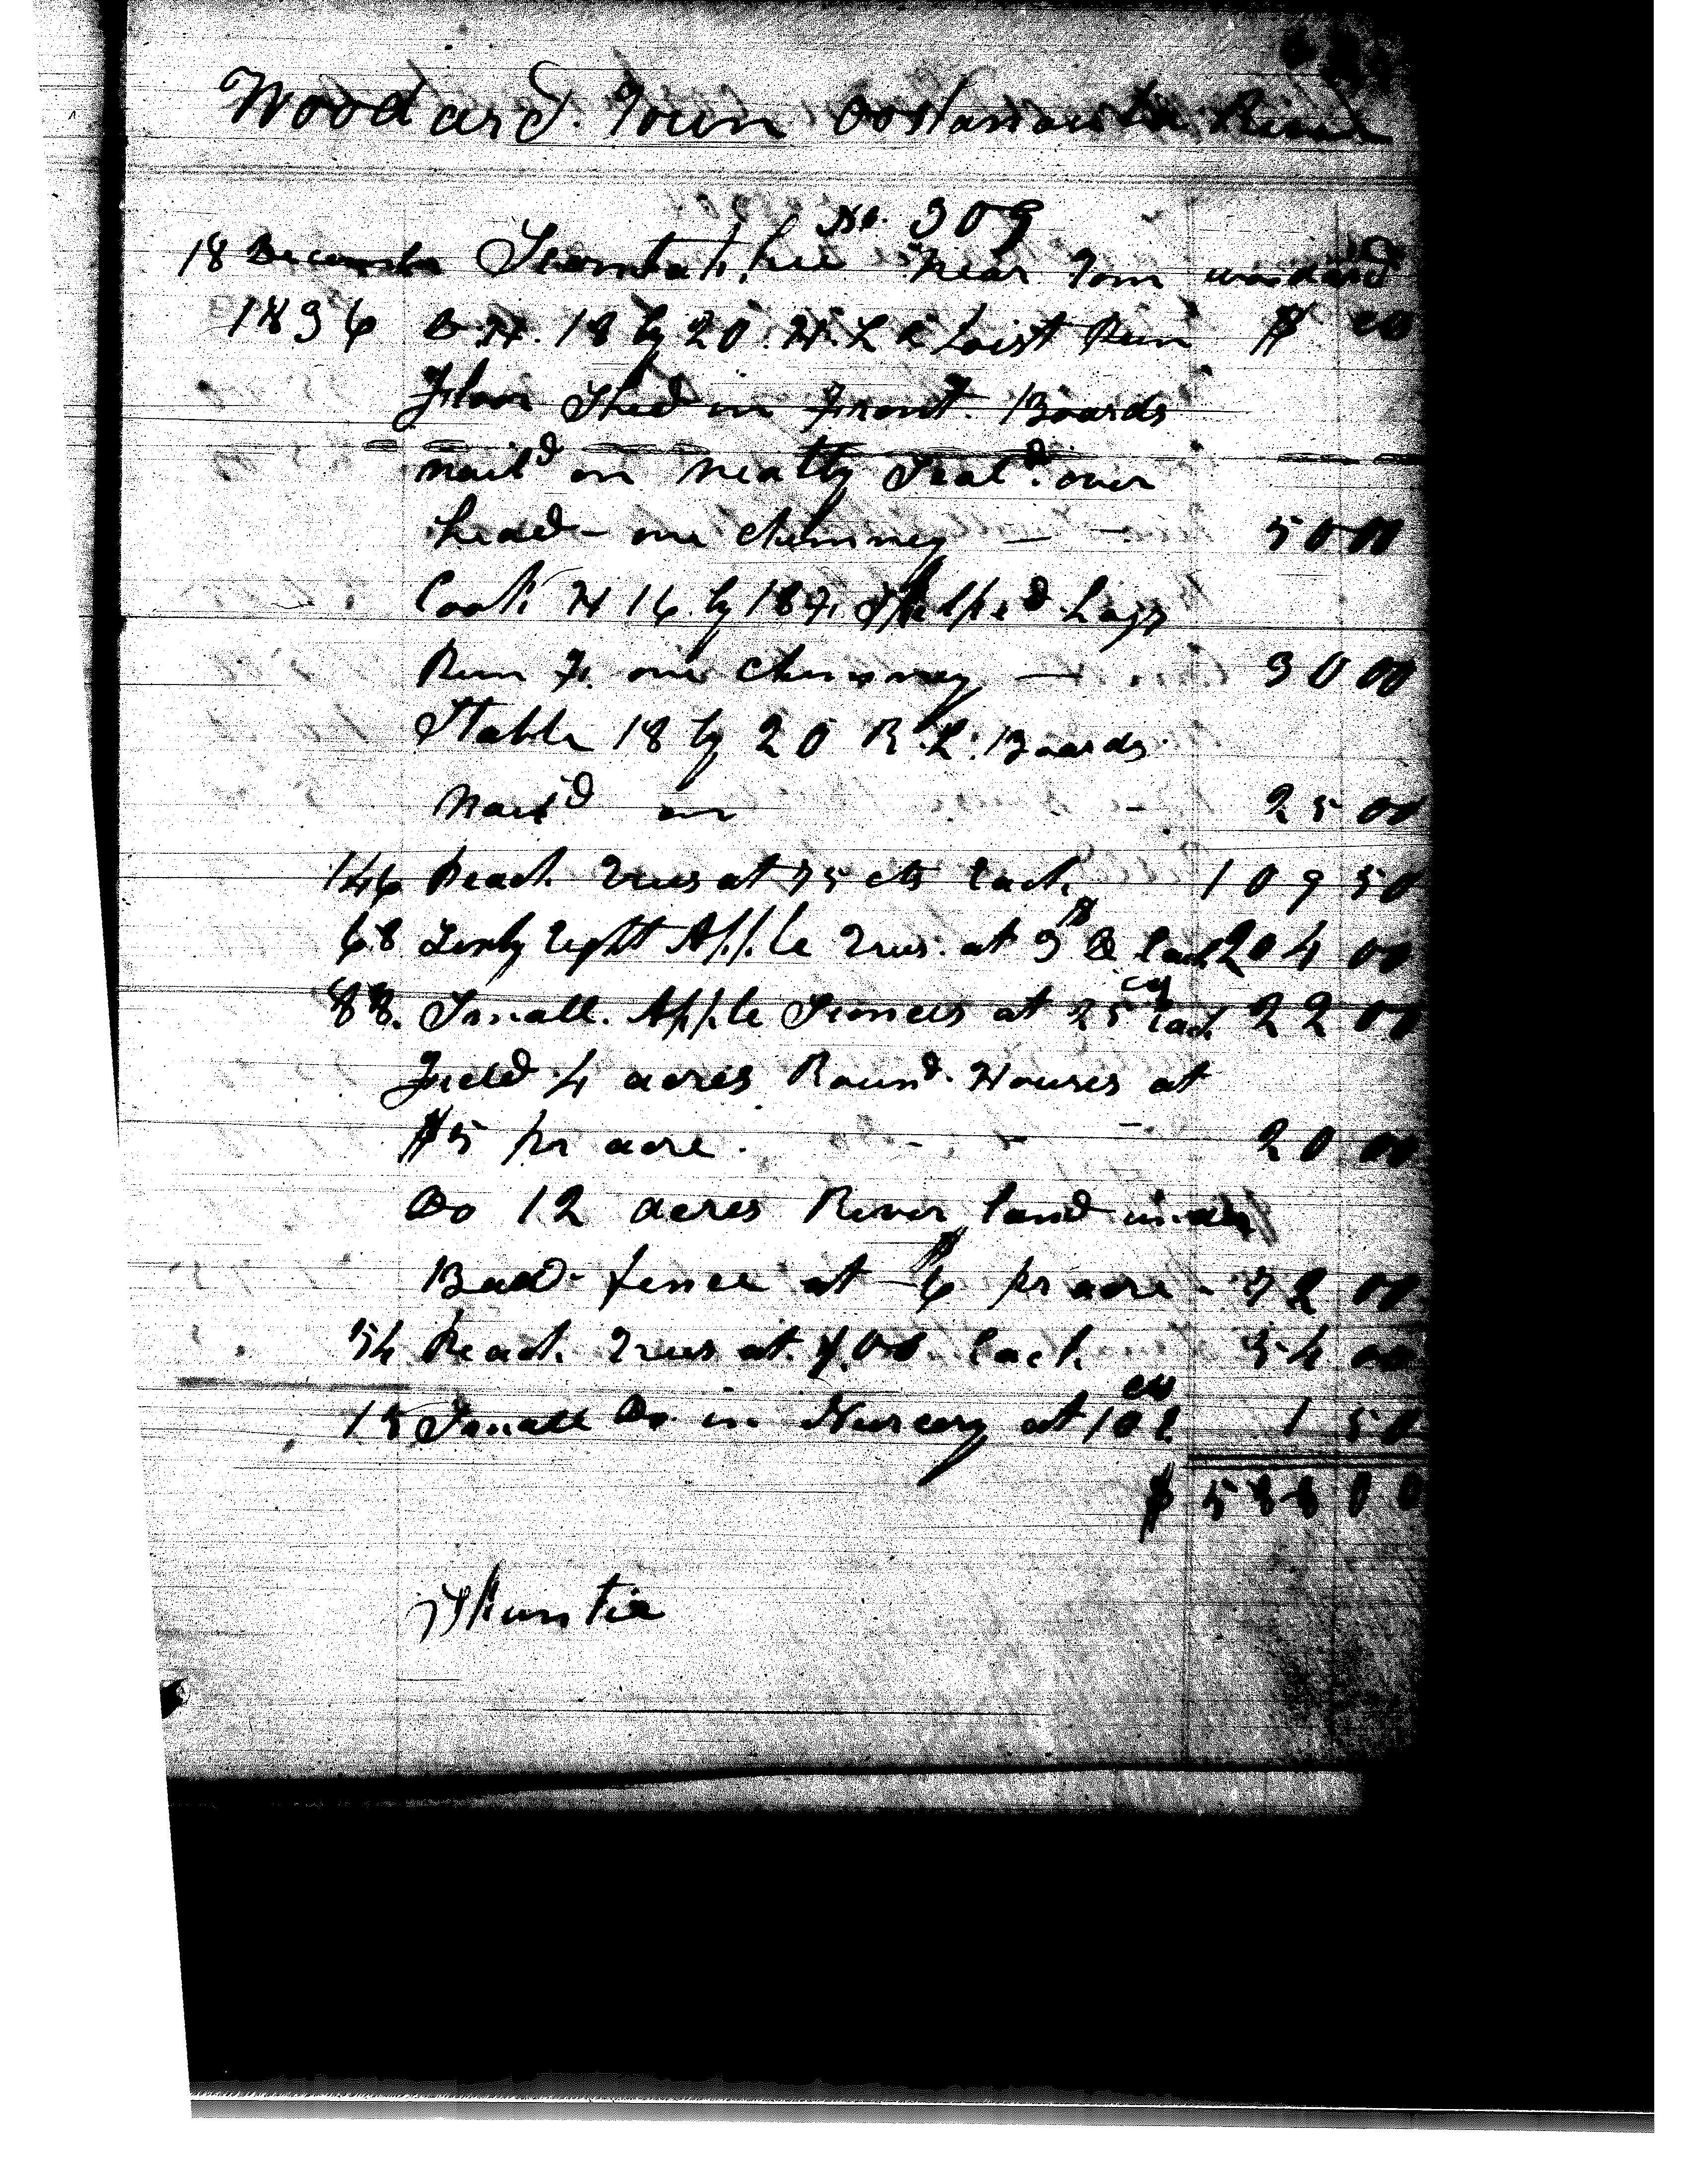 Woodard. Town Oostanawla River
No. 309
18 December near Tom woodard
1836 D.H. 18 by 20. H.L. & Loist Pun $ cts
Floor Shed in Front. Boards
nail'd on neatly Seal'd over
head - one chimney — - 50 00
Cook H 16 by 18 ft. Skelped Logs
Pun F. one chimney — 30 00
Stable 18 by 20 R.L. Boards
nail'd on - 25 00
146 Peach Trees at 75 cts Each 109 50
68 Sixty Eight Apple Trees at 3$ Each 204 00
88. Small Apple Sciones at 25 cts Each 22 00
Field 4 acres Round Houses at
$5 pr acre. - - - 20 00
Do 12 acres River land under
Bad fence at $6 pr acre - 72 00
54 Peach Trees at 1.00 Each 54 00
15 Small Do in Nursery at 10 cts 1 50
$ 588 00